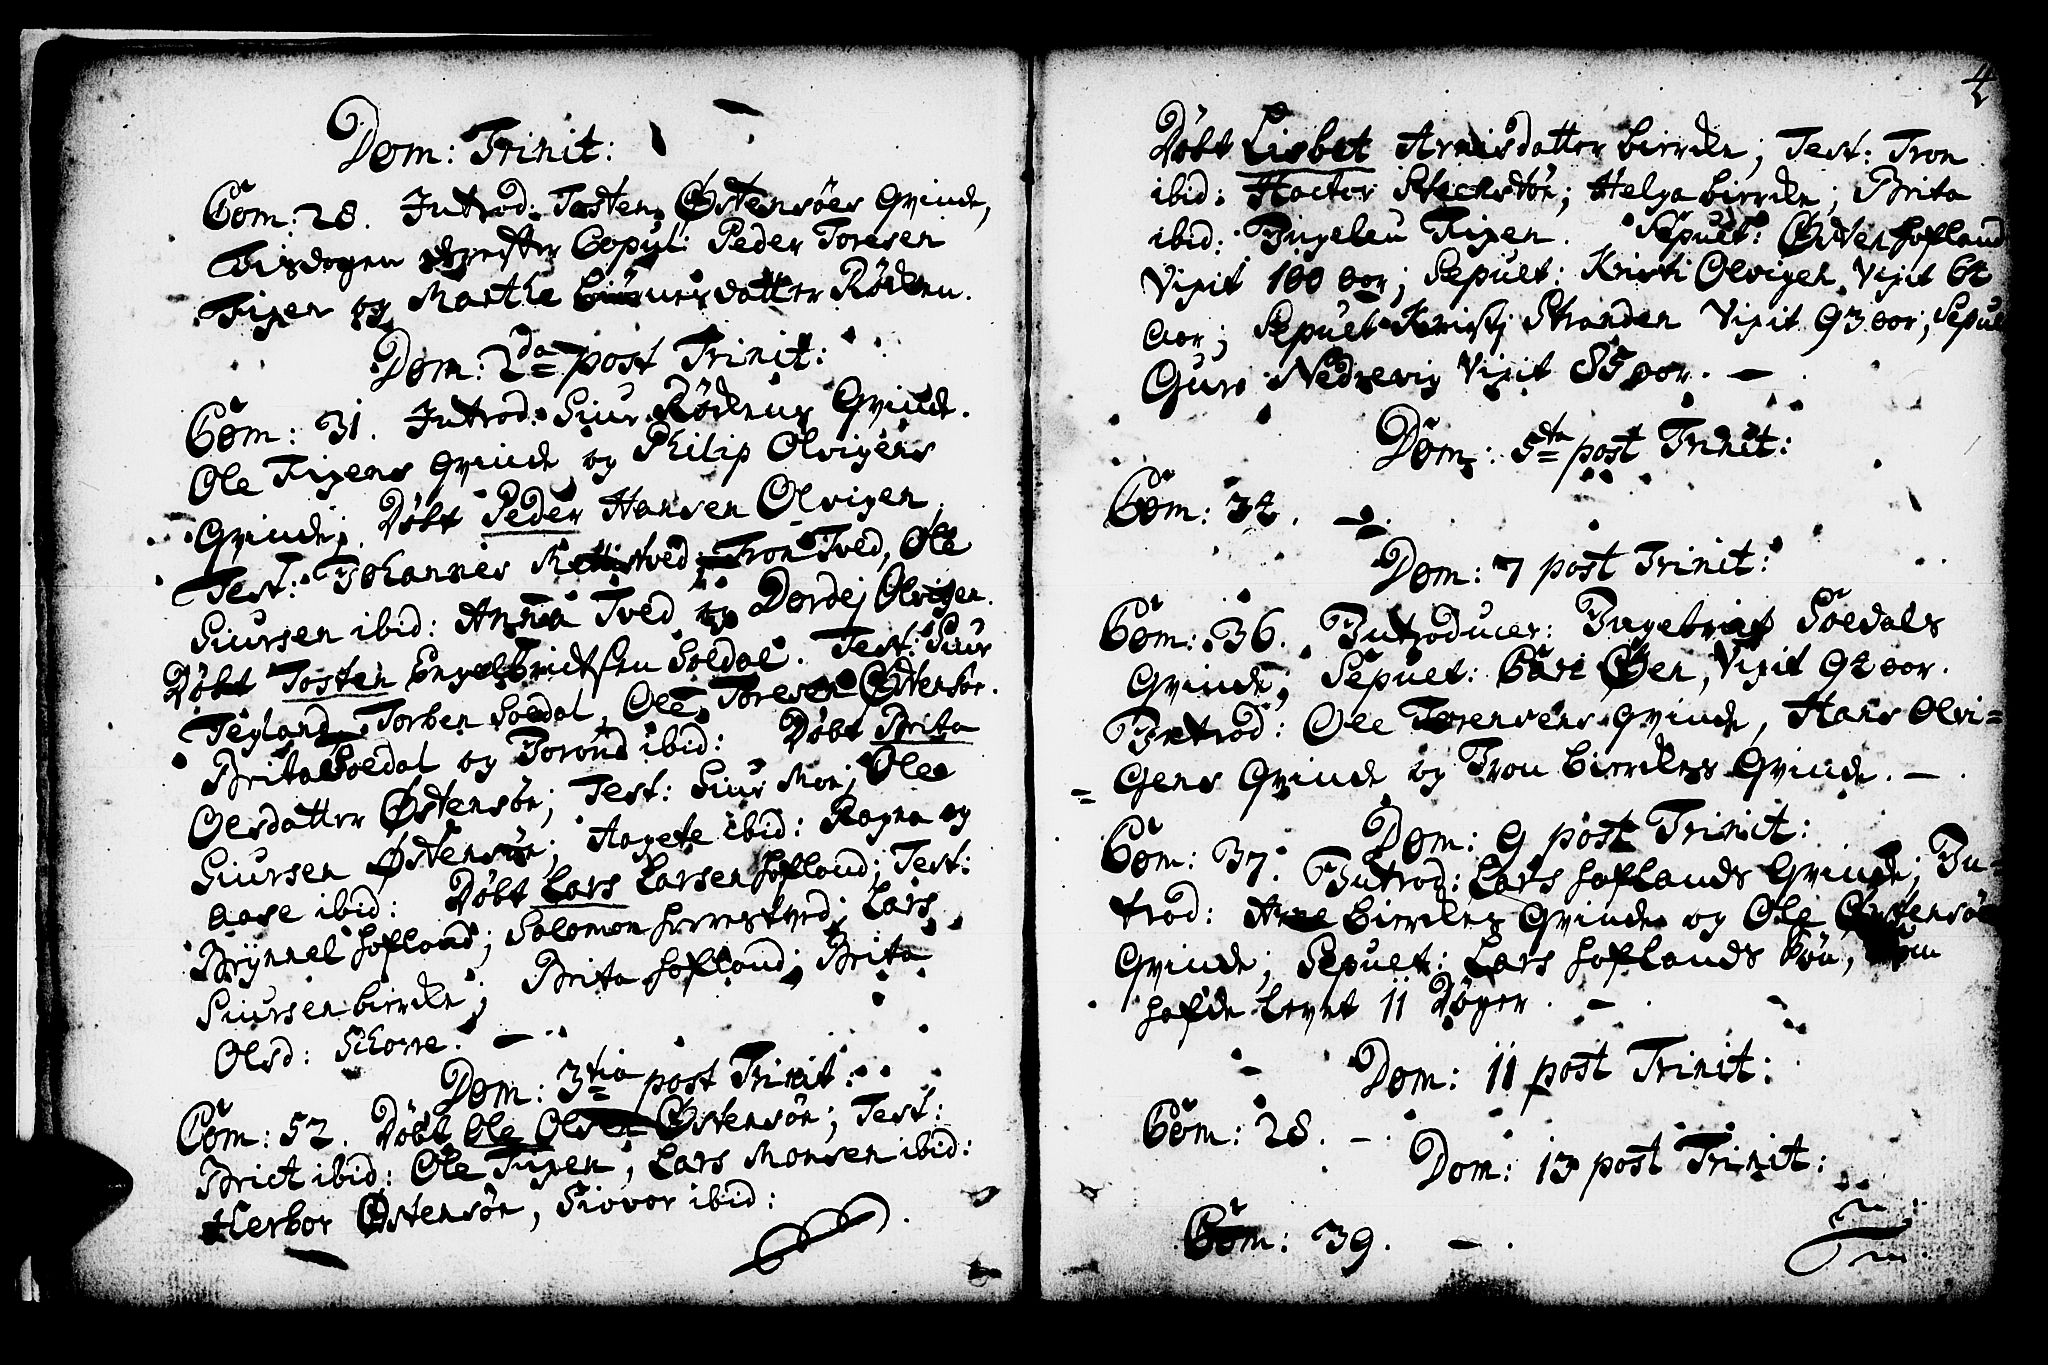 Dom: Trinit:
Com: 28. Introd: Tosten Østensöes Qvinde,
Tisdagen derefter Copul: Peder Toresen
Tixen og Marthe Siursdatter Röden.
Dom: 2da post Trinit:
Com: 31. Introd: Siur Rödens Qvinde.
Ole Tixens Qvinde og Philip Olvigens
Qvinde; Döbt Peder Hansen Olvigen
Test: Johannes Mettistved, Tron Tved, Ole
Siursen ibid: Anna Tved og Dordej Olvigen.
Döbt Tosten Engelbrictsen Soldal. Test: Siur
Tegland, Torben Soldal, Ole Toresen Østensöe.
Brita Soldal og Toround ibid: Döbt Brita
Olesdatter Østensöe; Test: Siur Moe; Ole
Siursen Østensöe; Aagete ibid: Ragna og
Aase ibid: Döbt Lars Larsen Hofland; Test:
Brynnel Hofland; Solomon Herrestved; Lars
Siursen birrele; Brita Hofland; Brita
Olsd: Skorre. —
Dom: 3tia post Trinit:
Com: 52. Döbt Ole Olsen Østensöe; Test:
Brict ibid: Ole Tixen, Lars Monsen ibid:
Herbor Østensöe, Siovor ibid:
4
Döbt Lisbet Arnisdatter birrele; Test: Tron
ibid: Hactor Steenstöe; Helga birrele; Brita
ibid: Ingeleu Tixen. Sepult: Østen Hofland
Vixit 100 aar; Sepult: Kristi Olvigen, Vixit 62
aar; Sepult Kristj Stranden Vixit 93 aar; Sepul
Guro Nedrevig Vixit 85 aar. —
Dom: 5ta post Trinit:
Com: 32. —
Dom: 7 post Trinit:
Com: 36. Introducer: Ingebrict Soldals
Qvinde; Sepult: Cari Øen, Vixit 92 aar.
Introd: Ole Torensens Qvinde, Hans Olvi=
= gens Qvinde og Tron birreles Qvinde. —
Dom: 9 post Trinit:
Com: 37. Introd: Lars Hoflands Qvinde; In-
trod: Arne birreles Qvinde og Ole Østensöe
Qvinde; Sepult: Lars Hoflands Sön, som
hafde levet 11 Döger. —
Dom: 11 post Trinit:
Com: 28. —
Dom: 13 post Trinit:
Com: 39. —